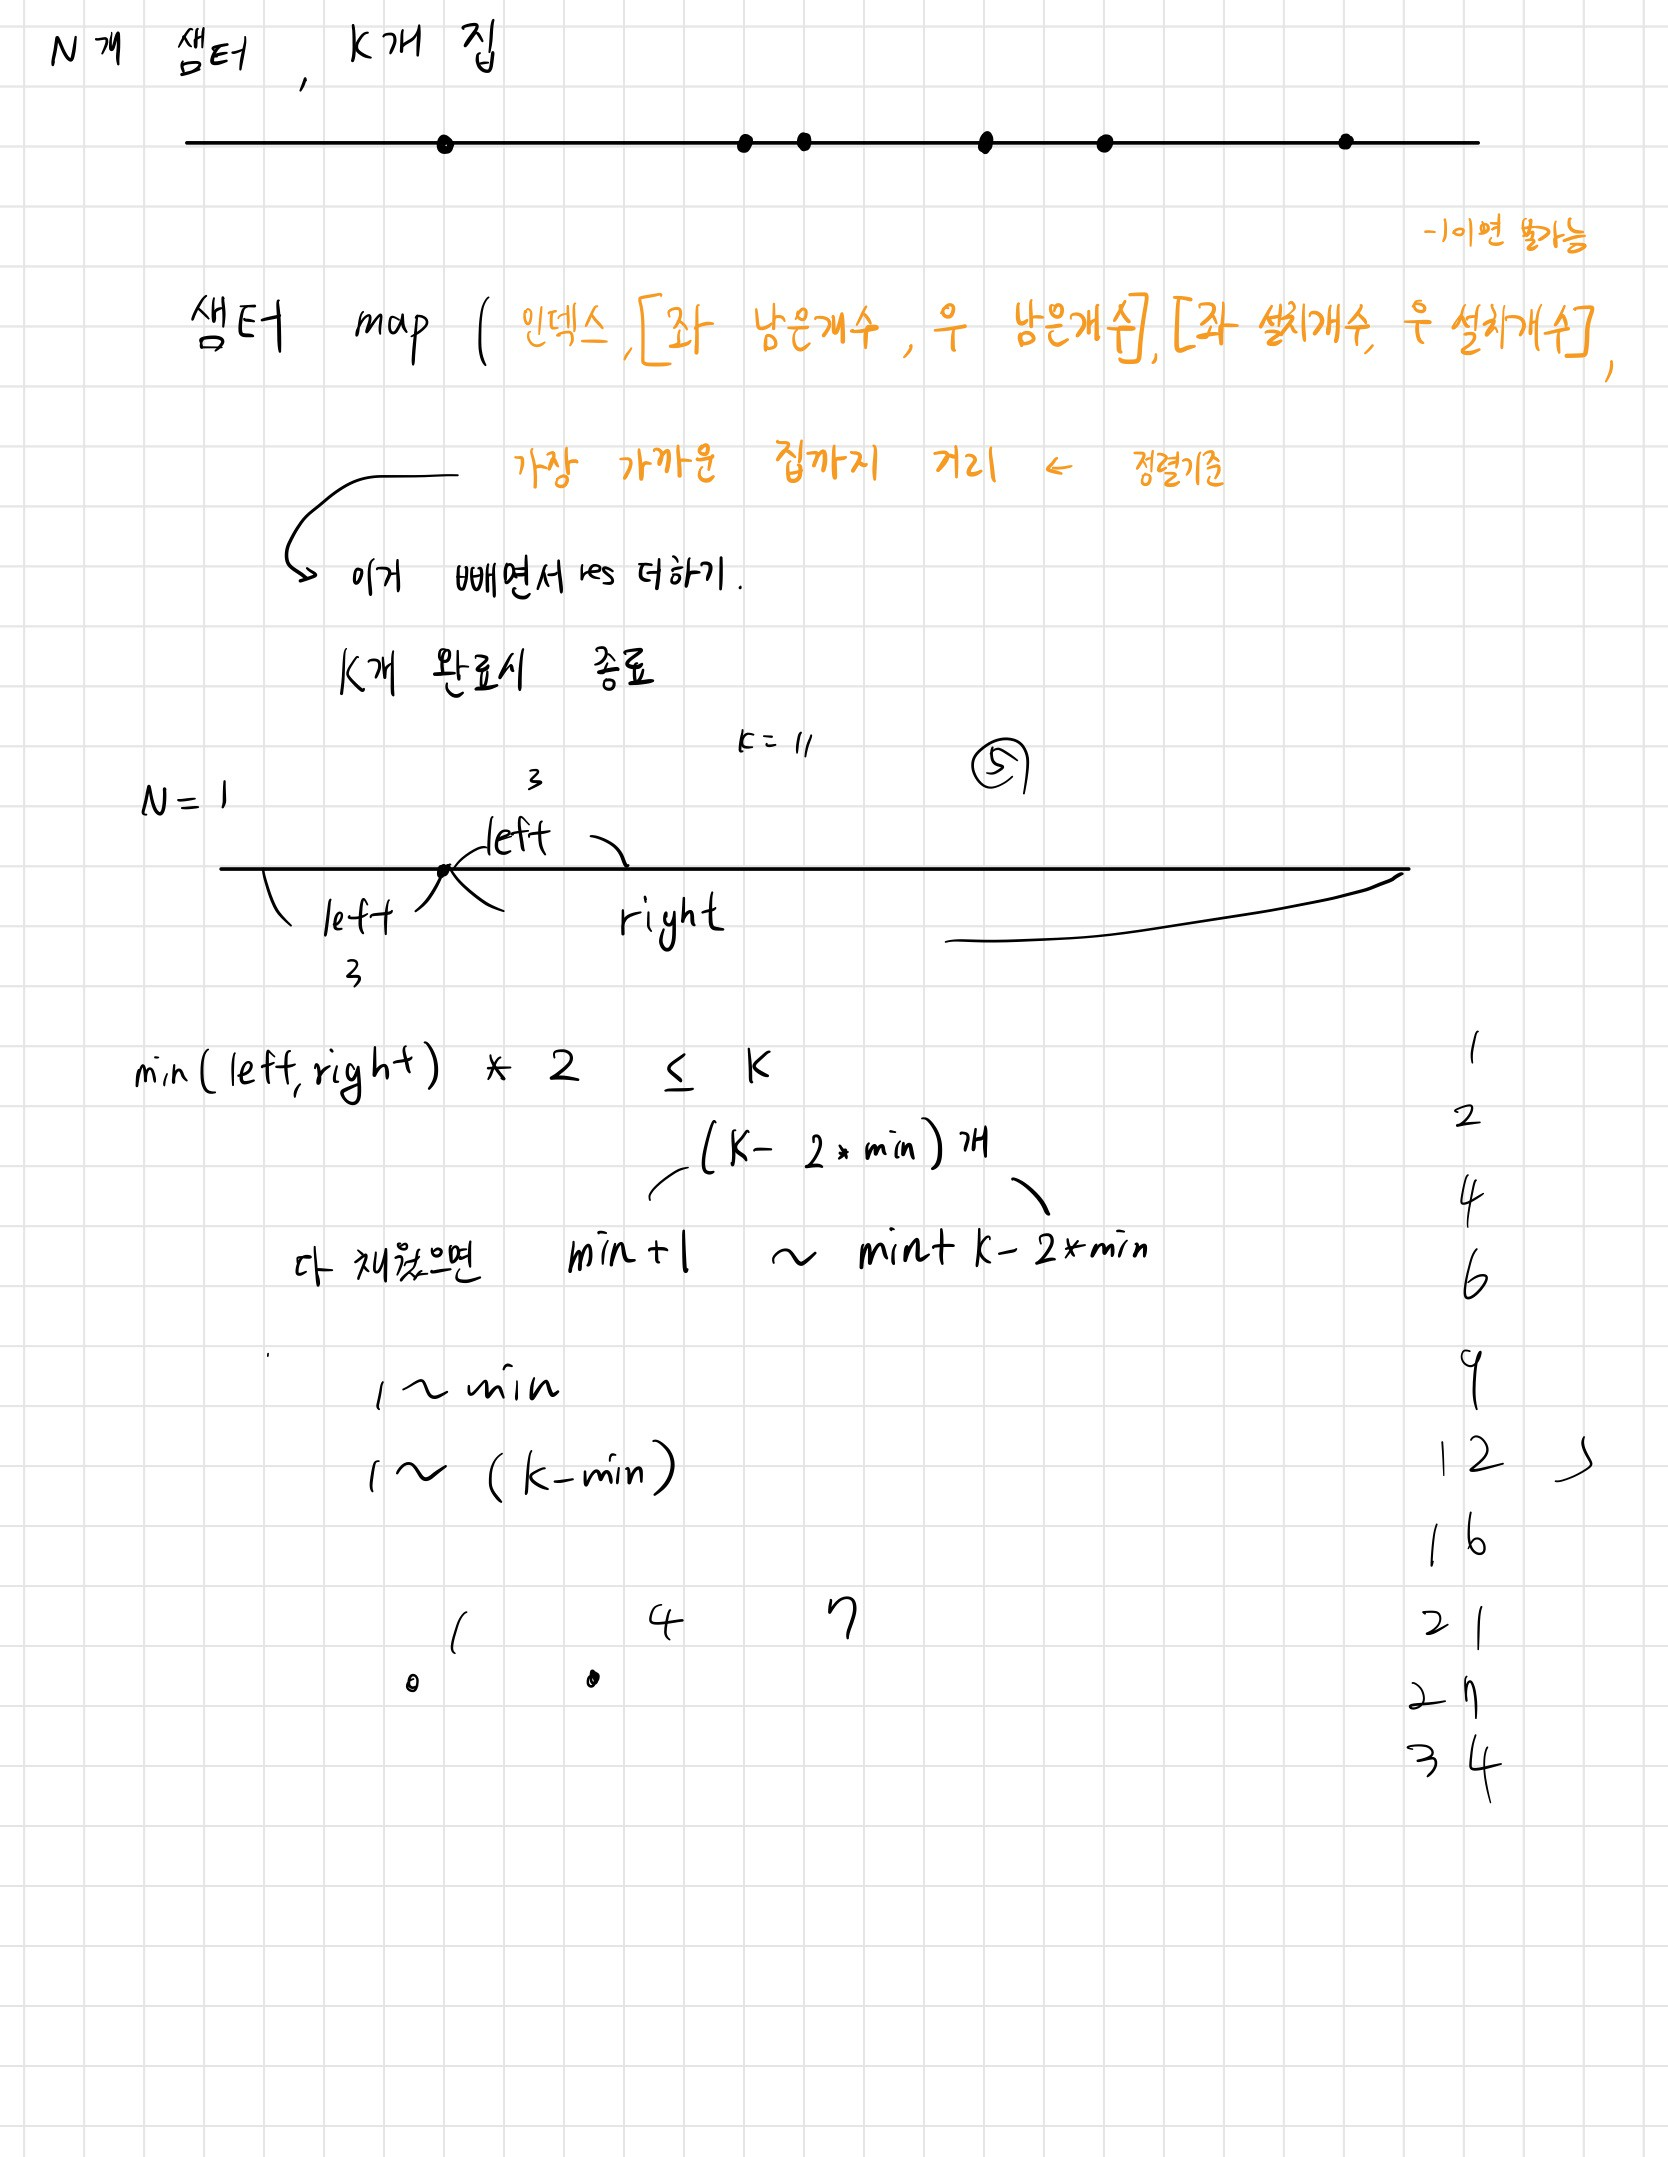 N개 샘터, K개 집
-1이면 불가능
샘터 map ( 인덱스, [좌 남은개수, 우 남은개수], [좌 설치개수, 우 설치개수],
가장 가까운 집까지 거리 ← 정렬기준
이거 빼면서 res 더하기.
K개 완료시 종료
K = 11
⑤
N = 1
3
left
left
right
3
min(left, right) * 2 ≤ K
(K - 2 * min)개
다 채웠으면 min+1 ~ min + K - 2*min
1 ~ min
1 ~ (K-min)
1 4 7
1
2
4
6
9
12
16
21
27
34